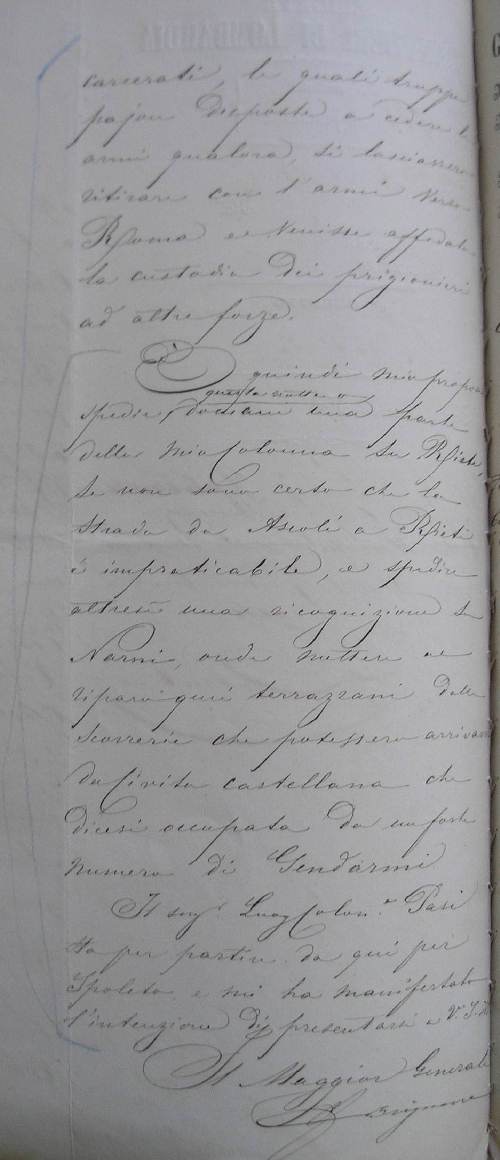 carcerati, le quali truppe
pajon disposte a cedere le
armi qualora, si lasciassero
ritirare con l'armi verso
Roma e venisse affidata
la custodia dei prigionieri
ad altre forze.
È quindi mio propo
questa notte o
spedire, domani una parte
della mia Colonna su Rieti,
se non sono certo che la
strada da Ascoli a Rieti
è impraticabile, e spedire
altresì una ricognizione su
Narni, onde mettere al
riparo quei terrazzani dalle
scorrerie che potessero arrivare
da Civita castellana che
dicesi occupata da un forte
numero di Gendarmi
Il Luog Colon. Pasi
sta per partire da qui per
Spoleto e mi ha manifestato
l'intenzione di presentarsi a V. S.
Il Maggior Generale
Brignone